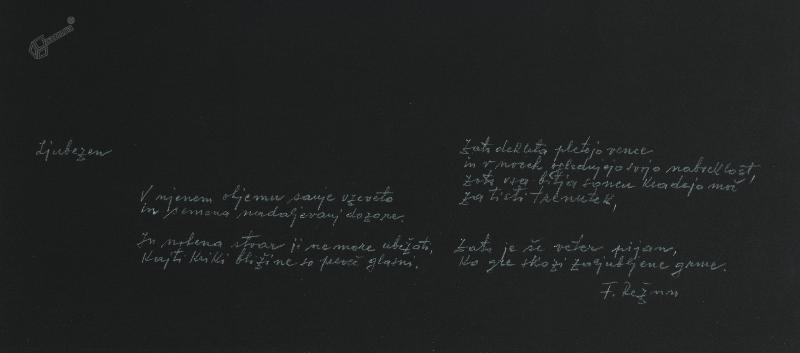 Ljubezen
V njenem objemu sanje vzcveto
in semena nadaljevanj dozore.
In nobena stvar ji ne more ubežati,
kajti kriki bližine so preveč glasni.
Zato dekleta pletejo vence
in v nočeh svojo nabreklost,
zato vsa bitja soncu kradejo moč
za tisti trenutek,
Zato je še veter pijan,
ko gre skozi zaljubljene grme.
F. Režun